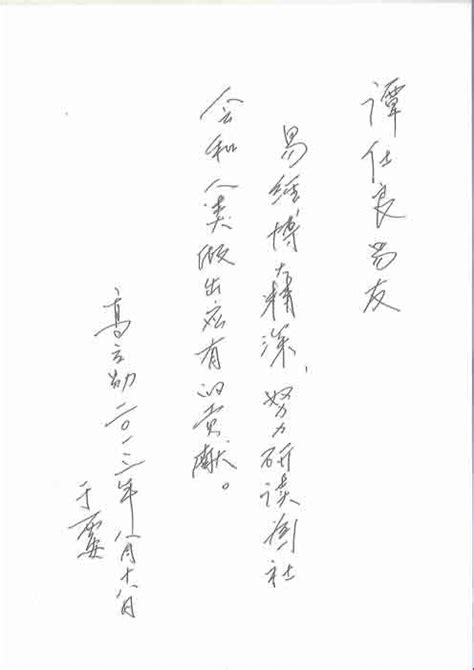 谭仕良易友
易经博大精深，努力研读为社
会和人类做出应有的贡献。
高立勋二〇一三年八月十八日
于